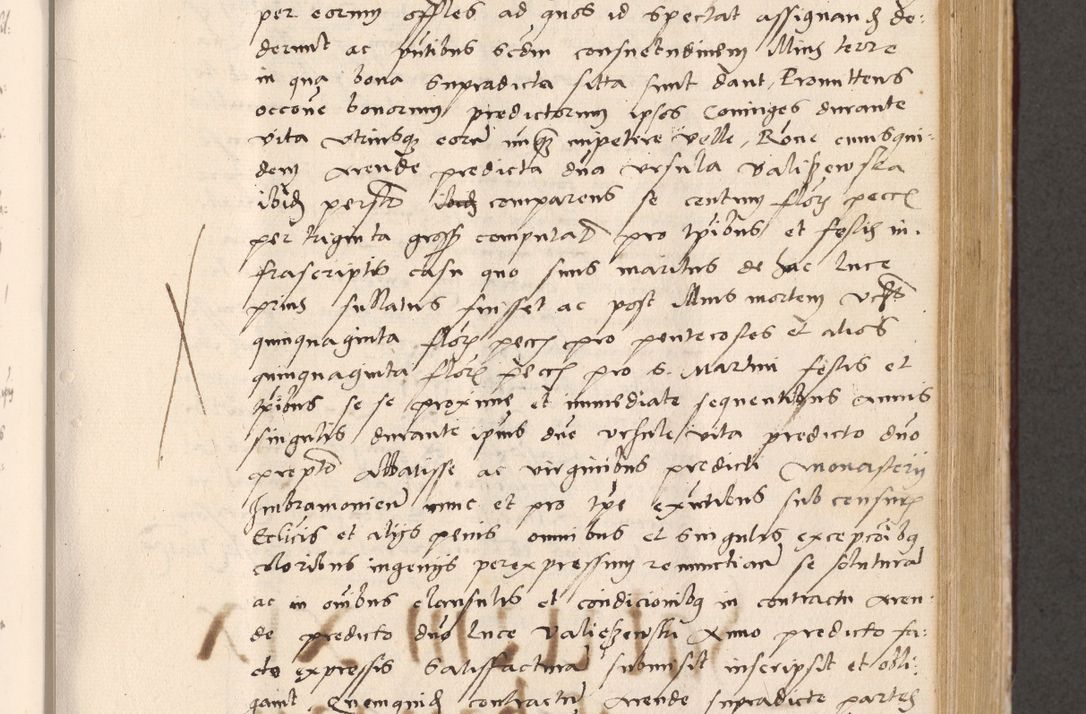 per eorum offles ad quos id spectat assignand de:
derunt ac putibus scdm consuetudinem illius terre
in qua bona supradicta sitta sunt dant, Promittens
occone bonorum predictorum ipsos Coniuges durante
vita utriusq eorum unq impetere velle, Rone cuiusqui:
dem Arende predicta dna Ursula Valiszewska
ibid comparens se centum flor pecc
per triginta gross computad pro tpibus et festis in,
frascriptis casu quo suus maritus de hac luce
prius sullatus fuisset ac post illius mortem
quinquaginta flor pecc pro pentecostes et alios
quinquaginta flor pecc pro s. Martini festis et
tpibus se se proxime et immediate sequentibus annis
singulis durante ipius dne Ursule vita predicto dno
Abbatisse ac virginibus predicti Monasterii
Imbramonien nunc et pro tpe exntibus sub censuris
Ecclicis et alijs penis omnibus et singulis exceptoibq
coloribus ingenijs per expressum renunctian se soluturam
ac in omibus clausulis et condicionibq in contractu Aren:
de predicto dno luce Valiszewsky Anno predicto fa:
cto expressis satisfacturam submisit inscripsit et obli:
gavit Quemquid contractum Arende supradicte partes